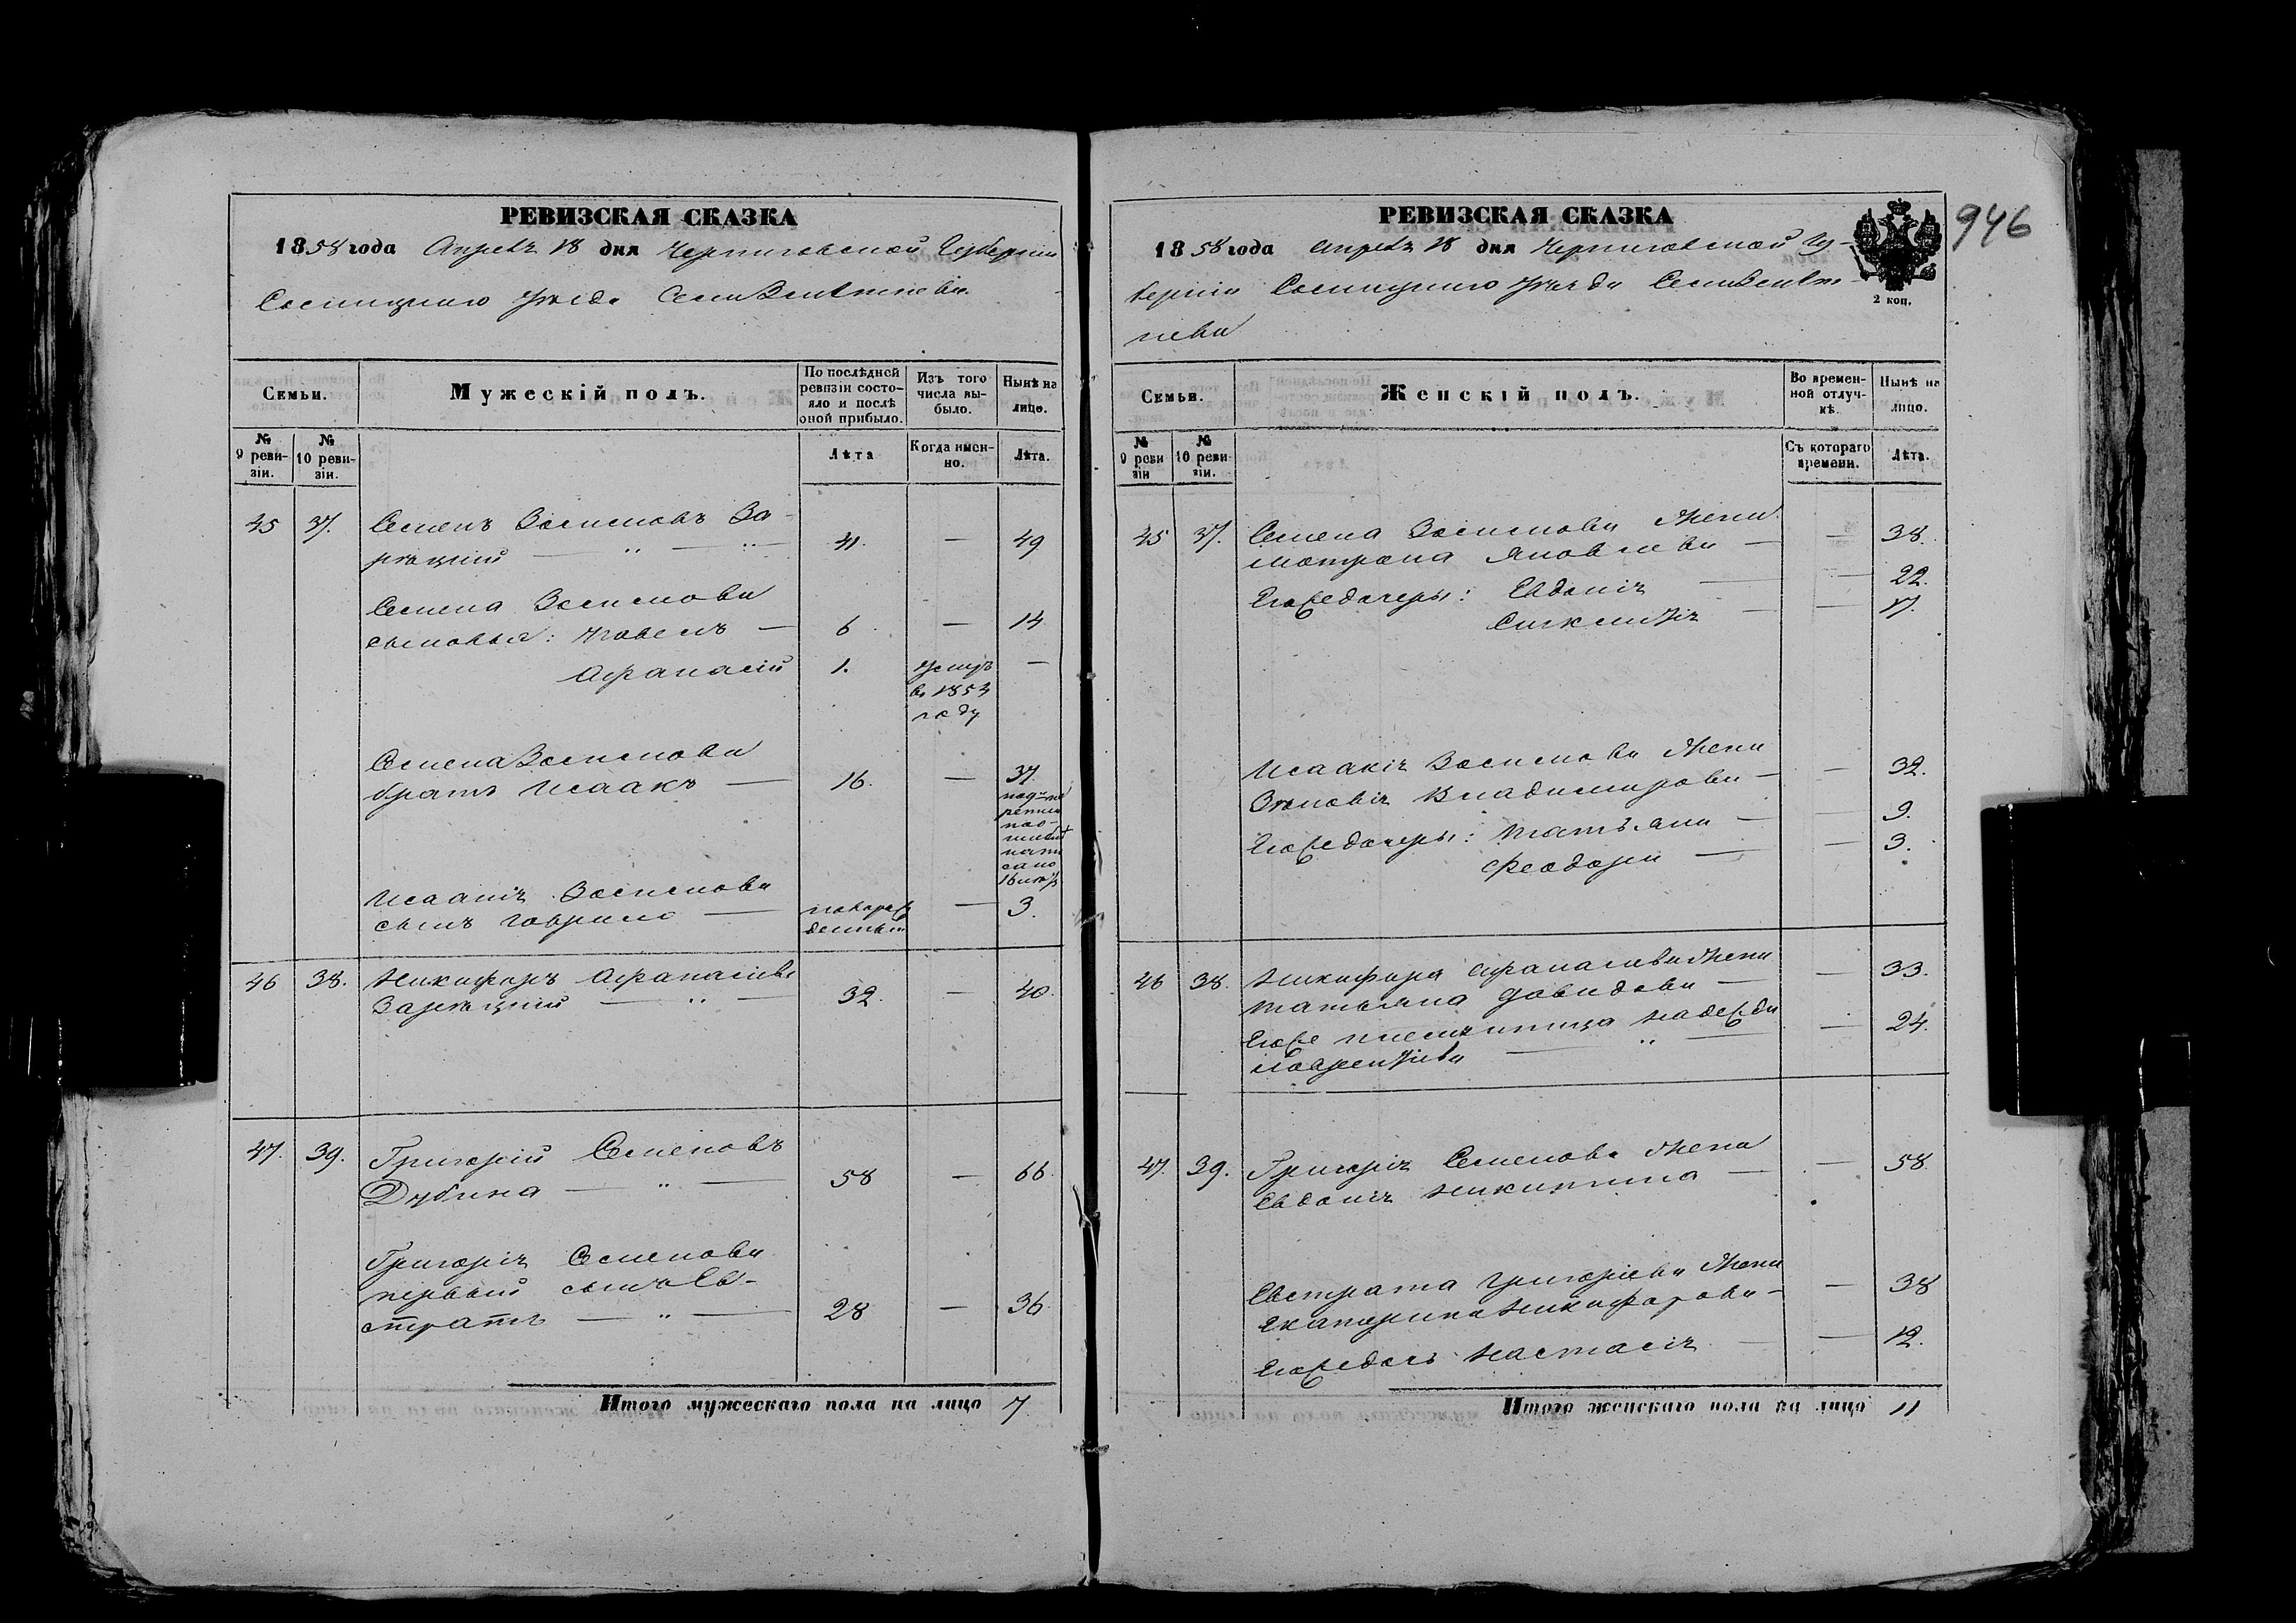 РЕВИЗСКАЯ СКАЗКА
1858 года Апреля 18 дня Черниговской Губернии
Сосницкаго Уезда Села
Семьи.
Мужескій полъ.
По послѣдней ревизіи состояло и послѣ оной прибыло.
Изъ того числа выбыло.
Нынѣ на лицо.
№ 9 ревизіи.
№ 10 ревизіи.
Лѣта
Когда именно.
Лѣта.
45 37. Семенъ Зосимовъ За-
рѣцкий — " — 41. — 49
Семена Зосимова
сыновья: Павелъ — 6 — 14
Афанасій 1. умеръ —
в 1853
году
Семена Зосимова
братъ Исаакъ — 16. — 37.
Исаакія Зосимова
сынъ Гаврило — новорож — 3.
денный
46 38. Никифоръ Афанасіевъ
Зарѣцкий — " — 32. — 40.
47. 39. Григорій Семеновъ
Дубина — " — 58 — 66.
Григорія Семенова
первый сынъ Ев-
стратъ — " — 28 — 36.
Итого мужескаго пола на лицо 7
946
РЕВИЗСКАЯ СКАЗКА
1858 года Апреля 18 дня Черниговской Гу-
берніи Сосницкаго Уезда Села
2 коп.
Семьи.
Женскій полъ.
Во временной отлучкѣ.
Нынѣ на лицо.
№ 9 ревизіи
№ 10 ревизіи.
Съ котораго времени.
Лѣта.
45 37. Семена Зосимова Жена
Мотрона Яковлева — — 38.
Егоже дочери: Евдокія — — 22.
— — 17.
Исаакія Зосимова Жена
Зѣновія Владимирова — — 32.
Егоже дочери: Татьяна — — 9.
Феодора — — 3.
46 38. Никифора Афанасиева Жена — 33.
Татьяна Давидова —
Егоже племянница Надежда — 24.
Лаврентіева — " —
47. 39. Григорія Семенова Жена — 58.
Евдокія Никитина —
Евстрата Григоріева Жена — 38
Екатерина Никифорова —
Егоже дочь Настасія — — 12.
Итого женскаго пола на лицо 11